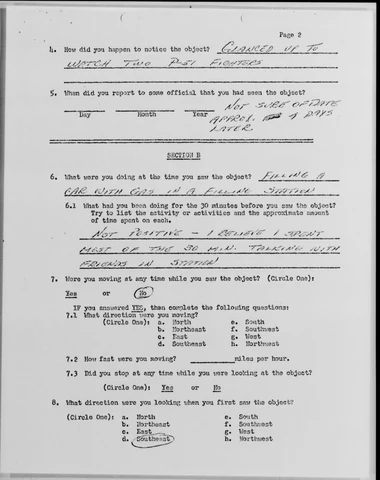 Page 2
4. How did you happen to notice the object? GLANCED UP TO
WATCH TWO P-51 FIGHTERS
5. When did you report to some official that you had seen the object?
Day Month Year
NOT SURE OF DATE
APPROX. 7 DAYS
LATER.
SECTION B
6. What were you doing at the time you saw the object? FILLING A
CAR WITH GAS IN A FILLING STATION
6.1 What had you been doing for the 30 minutes before you saw the object?
Try to list the activity or activities and the approximate amount
of time spent on each.
NOT POSITIVE - I BELIEVE I SPENT
MOST OF THE 30 MIN. TALKING WITH
FRIENDS IN STATION
7. Were you moving at any time while you saw the object? (Circle One):
Yes or No
IF you answered YES, then complete the following questions:
7.1 What direction were you moving?
(Circle One): a. North e. South
b. Northeast f. Southwest
c. East g. West
d. Southeast h. Northwest
7.2 How fast were you moving? miles per hour.
7.3 Did you stop at any time while you were looking at the object?
(Circle One): Yes or No
8. What direction were you looking when you first saw the object?
(Circle One): a. North e. South
b. Northeast f. Southwest
c. East g. West
d. Southeast h. Northwest